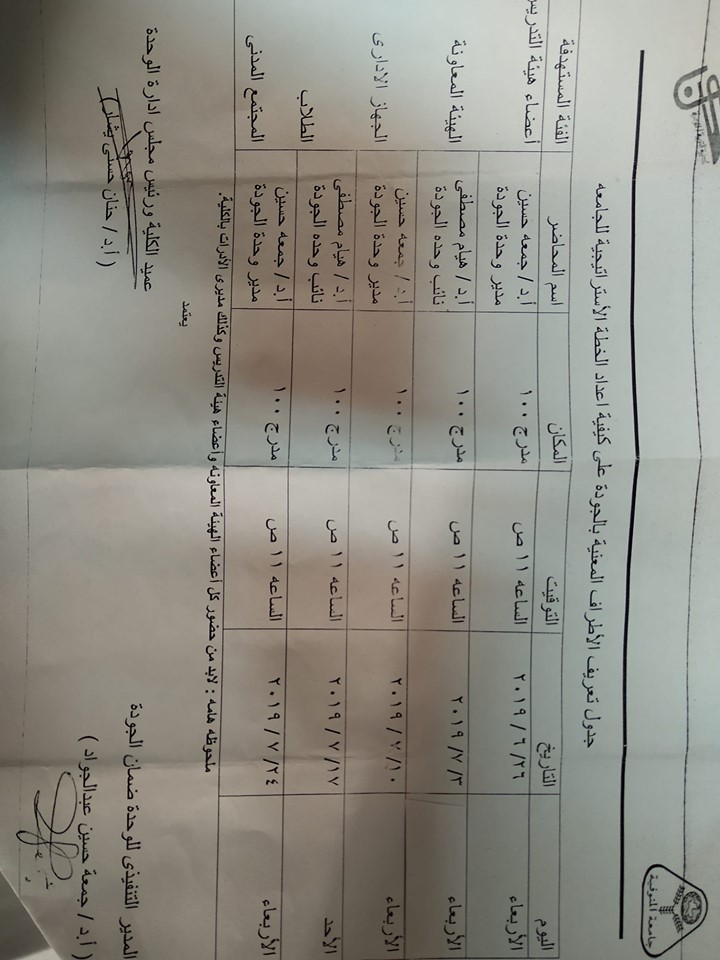 جامعة المنوفية
جدول تعريف الأطراف المعنية بالجودة على كيفية اعداد الخطة الأستراتيجية للجامعه
اليوم التاريخ التوقيت المكان اسم المحاضر الفئة المستهدفة
الأربعاء ٢٦ / ٦ / ٢٠١٩ الساعه ١١ ص مدرج ١٠٠ أ.د/ جمعه حسين أعضاء هيئة التدريس
مدير وحدة الجودة
الأربعاء ٣ / ٧ / ٢٠١٩ الساعه ١١ ص مدرج ١٠٠ أ.د/ هيام مصطفى الهيئة المعاونة
نائب وحده الجودة
الأربعاء ١٠ / ٧ / ٢٠١٩ الساعه ١١ ص مدرج ١٠٠ أ.د/ جمعه حسين الجهاز الادارى
مدير وحدة الجودة
الأحد ١٧ / ٧ / ٢٠١٩ الساعه ١١ ص مدرج ١٠٠ أ.د/ هيام مصطفى الطلاب
نائب وحده الجودة
الأربعاء ٢٤ / ٧ / ٢٠١٩ الساعه ١١ ص مدرج ١٠٠ أ.د/ جمعه حسين المجتمع المدنى
مدير وحدة الجودة
ملحوظه هامه : لابد من حضور كل أعضاء الهيئة المعاونه وأعضاء هيئة التدريس وكذلك مديرى الأدرات بالكلية.
يعتمد
المدير التنفيذى للوحدة ضمان الجودة
( أ.د/ جمعة حسين عبدالجواد )
عميد الكلية ورئيس مجلس ادارة الوحدة
( أ.د/ حنان حسنى يشار )